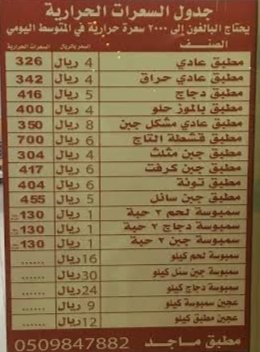 جدول السعرات الحرارية
يحتاج البالغون إلى ٢٠٠٠ سعرة حرارية في المتوسط اليومي
الصنف السعر بالريال السعرات الحرارية
مطبق عادي 4 ريال 326
مطبق عادي حراق 4 ريال 342
مطبق دجاج 5 ريال 416
مطبق بالموز حلو 4 ريال 400
مطبق عادي مشكل جبن 8 ريال 350
مطبق قشطة التاج 6 ريال 700
مطبق جبن مثلث 4 ريال 304
مطبق جبن كرفت 6 ريال 417
مطبق تونة 6 ريال 404
مطبق جبن سائل 5 ريال 455
سمبوسة لحم ٢ حبة 1 ريال 130
سمبوسة دجاج ٢ حبة 1 ريال 130
سمبوسة جبن ٢ حبة 1 ريال 130
سمبوسة لحم كيلو 16 ريال ......
سمبوسة جبن كيلو 30 ريال ......
سمبوسة دجاج كيلو 24 ريال ......
عجين سمبوسة كيلو 9 ريال ......
عجين مطبق كيلو 12 ريال ......
مطبق ماجد 0509847882